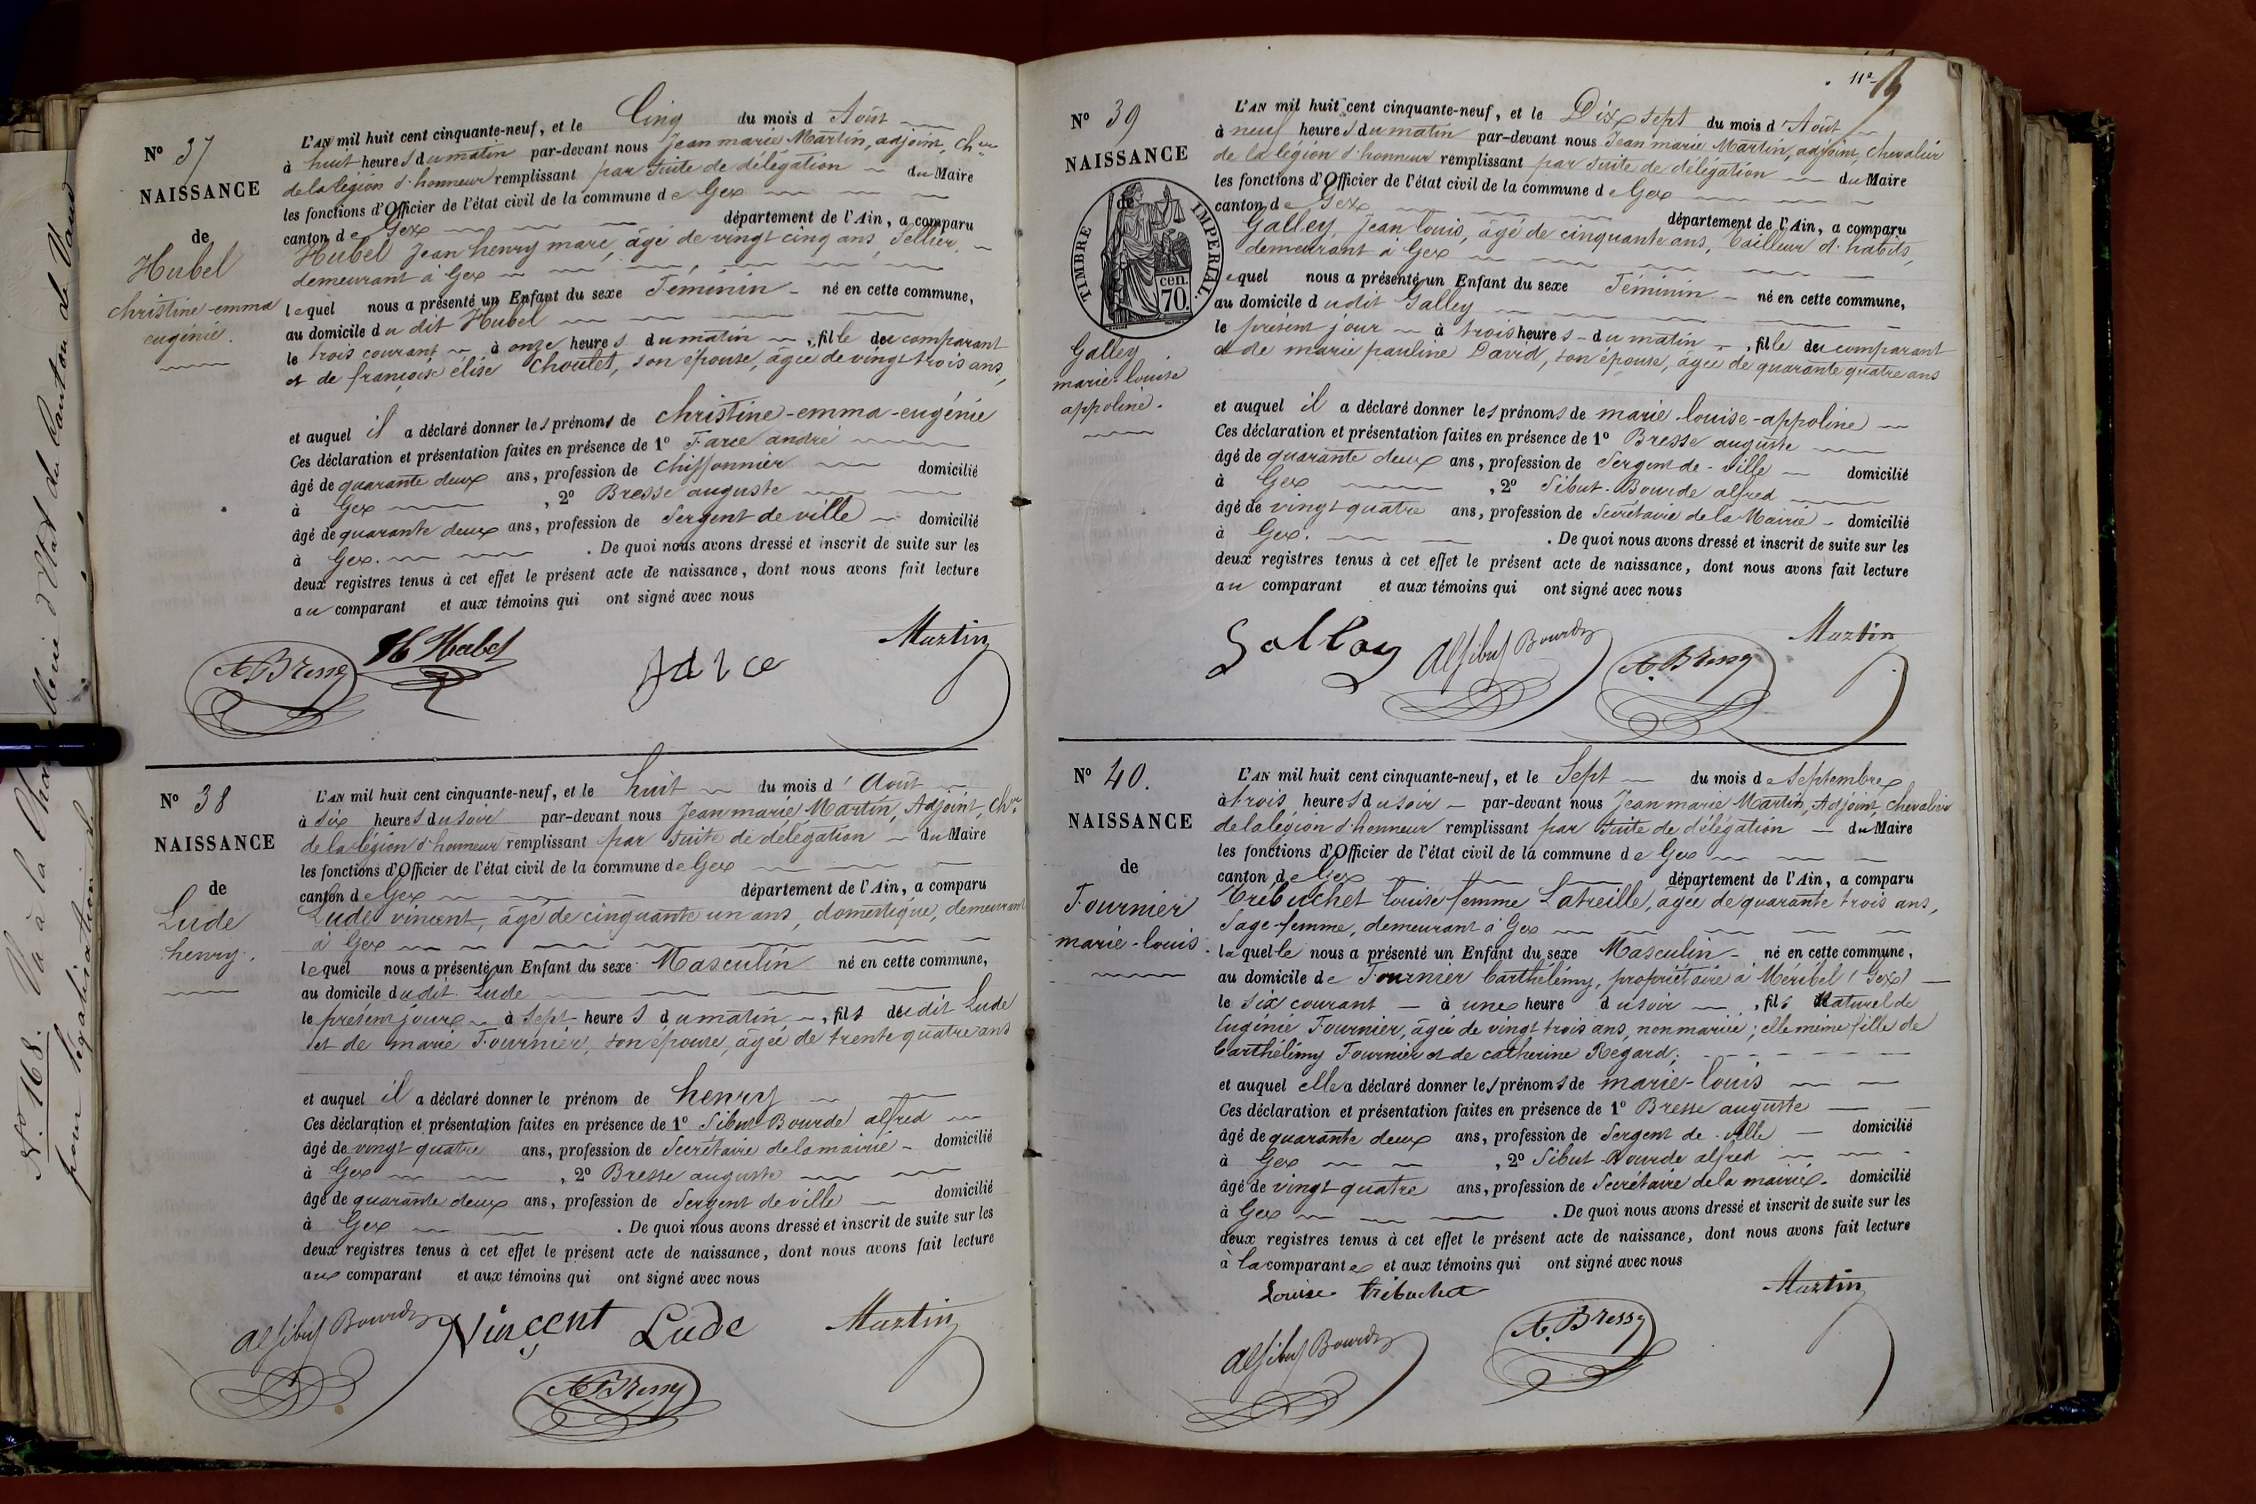 N° 37
NAISSANCE
de
Hubel
christine-emma
eugénie.
L'AN mil huit cent cinquante-neuf, et le Cinq du mois d Août
à huit heures du matin par-devant nous Jean marie Martin, adjoint, Cher
de la légion d'honneur remplissant par suite de délégation du Maire
les fonctions d'Officier de l'état civil de la commune de Gex
canton de Gex département de l'Ain, a comparu
Hubel Jean henry marc, âgé de vingt cinq ans, Sellier,
demeurant à Gex
lequel nous a présenté un Enfant du sexe Féminin né en cette commune,
au domicile du dit Hubel
le trois courant à onze heures du matin, fille du comparant
et de françoise élise Choulet, son épouse, âgée de vingt trois ans,
et auquel il a déclaré donner les prénoms de christine-emma-eugénie
Ces déclaration et présentation faites en présence de 1° Farce andré
âgé de quarante deux ans, profession de chiffonnier domicilié
à Gex, 2° Bresse auguste
âgé de quarante deux ans, profession de Sergent de ville domicilié
à Gex. De quoi nous avons dressé et inscrit de suite sur les
deux registres tenus à cet effet le présent acte de naissance, dont nous avons fait lecture
au comparant et aux témoins qui ont signé avec nous
A. Bresse H Hubel Martin
N° 38
NAISSANCE
de
Lude
henry.
L'AN mil huit cent cinquante-neuf, et le huit du mois d'Août
à six heures du soir par-devant nous Jean marie Martin, Adjoint, Cher
de la légion d'honneur remplissant par suite de délégation du Maire
les fonctions d'Officier de l'état civil de la commune de Gex
canton de Gex département de l'Ain, a comparu
Lude vincent, âgé de cinquante un ans, domestique, demeurant
à Gex
lequel nous a présenté un Enfant du sexe Masculin né en cette commune,
au domicile dudit Lude
le présent jour à sept heures du matin, fils dudit Lude
et de marie Fournier, son épouse, âgée de trente quatre ans
et auquel il a déclaré donner le prénom de henry
Ces déclaration et présentation faites en présence de 1° Sibut-Bourde alfred
âgé de vingt quatre ans, profession de Secrétaire de la mairie domicilié
à Gex, 2° Bresse auguste
âgé de quarante deux ans, profession de Sergent de ville domicilié
à Gex. De quoi nous avons dressé et inscrit de suite sur les
deux registres tenus à cet effet le présent acte de naissance, dont nous avons fait lecture
au comparant et aux témoins qui ont signé avec nous
Al Sibut Bourde Vincent Lude Martin
A. Bresse
N° 168. Vu à la
pour légalisation de
d'Etat du Canton de Vaud
11e
N° 39
NAISSANCE
de
TIMBRE IMPERIAL.
70. cen.
Galley
marie-louise
appoline.
L'AN mil huit cent cinquante-neuf, et le Dix sept du mois d'Août
à neuf heures du matin par-devant nous Jean marie Martin, adjoint, chevalier
de la légion d'honneur remplissant par suite de délégation du Maire
les fonctions d'Officier de l'état civil de la commune de Gex
canton de Gex département de l'Ain, a comparu
Galley, Jean louis, âgé de cinquante ans, tailleur d'habits,
demeurant à Gex
equel nous a présenté un Enfant du sexe Féminin né en cette commune,
au domicile dudit Galley
le présent jour à trois heures du matin, fille du comparant
et de marie pauline David, son épouse, âgée de quarante quatre ans
et auquel il a déclaré donner les prénoms de marie-louise-appoline
Ces déclaration et présentation faites en présence de 1° Bresse auguste
âgé de quarante deux ans, profession de Sergent de-ville domicilié
à Gex, 2° Sibut-Bourde alfred
âgé de vingt quatre ans, profession de Secrétaire de la Mairie domicilié
à Gex. De quoi nous avons dressé et inscrit de suite sur les
deux registres tenus à cet effet le présent acte de naissance, dont nous avons fait lecture
au comparant et aux témoins qui ont signé avec nous
Galley Al Sibut Bourde A. Bresse Martin
N° 40.
NAISSANCE
de
Fournier
marie-louis.
L'AN mil huit cent cinquante-neuf, et le Sept du mois de Septembre
à trois heures du soir par-devant nous Jean marie Martin, Adjoint, chevalier
de la légion d'honneur remplissant par suite de délégation du Maire
les fonctions d'Officier de l'état civil de la commune de Gex
canton de Gex département de l'Ain, a comparu
Trébuchet louise femme Latreille, âgée de quarante trois ans,
Sage-femme, demeurant à Gex
laquelle nous a présenté un Enfant du sexe Masculin né en cette commune,
au domicile de Fournier barthélémy, propriétaire à Méribel (Gex)
le six courant à une heure du soir, fils Naturel de
Eugénie Fournier, âgée de vingt trois ans, non mariée; elle même fille de
barthélémy Fournier et de catherine Régard;
et auquel elle a déclaré donner les prénoms de marie-louis
Ces déclaration et présentation faites en présence de 1° Bresse auguste
âgé de quarante deux ans, profession de Sergent de-ville domicilié
à Gex, 2° Sibut-Bourde alfred
âgé de vingt quatre ans, profession de Secrétaire de la mairie domicilié
à Gex. De quoi nous avons dressé et inscrit de suite sur les
deux registres tenus à cet effet le présent acte de naissance, dont nous avons fait lecture
à la comparante et aux témoins qui ont signé avec nous
Louise trébuchet Martin
Al Sibut Bourde A. Bresse